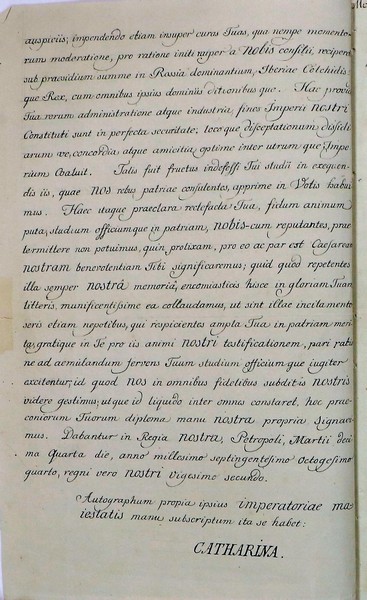 auspiciis; impendendo etiam insuper curas Tuas, qua nempe momento-
rum moderatione, pro ratione initi nuper a nobis consilii, reciperet
sub praesidium summe in Russia dominantium, Iberiae Colchidis-
que Rex, cum omnibus ipsius dominii ditionibus que. Hac provida
Tua rerum administratione atque industria, fines Imperii nostri
Constituti sunt in perfecta securitate; locoque disceptationum dissidi-
arum ve, concordia atque amicitia optime inter utrum que Impe-
rium Coaluit. Talis fuit fructus indefessi Tui studii in exequen-
dis iis, quae nos rebus patriae consulentes, apprime in Votis habui
mus. Haec itaque praeclara rectefacta Tua, fidum animum
puta, studium officiumque in patriam, nobis-cum reputantes, prae
termittere non potuimus, quin prolixam, pro eo ac par est Caesaream
nostram benevolentiam Tibi significaremus; quid quod repetentes
illa semper nostra memoria, encomiasticis hisce in gloriam Tuam
litteris, munificentissime ea collaudamus, ut sint illae incitamento
seris etiam nepotibus, qui respicientes ampla Tua in patriam meri
ta, gratique in Te pro iis animi nostri testificationem, pari ratio
ne ad aemulandum fervens Tuum studium officiumque jugiter
excitentur; id quod nos in omnibus fidelibus subditis nostris
videre gestimus; utque id liquido inter omnes constaret, hoc prae-
coniorum Tuorum diploma manu nostra propria signavi
mus. Dabantur in Regia nostra, Petropoli, Martii deci
ma quarta die, anno millesimo septingentesimo octogesimo
quarto, regni vero nostri vigesimo secundo.
Autographum propia ipsius imperatoriae ma-
iestatis manu subscriptum ita se habet:
CATHARINA.